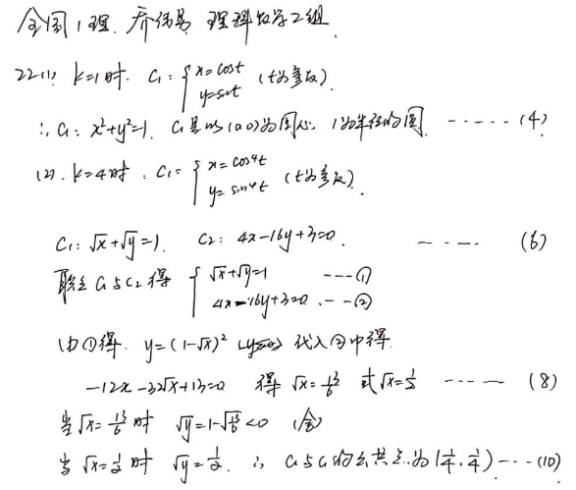 全国1理. 乔伟男 理科数学2组.
22(1) k=1时. C₁: { x=cost y=sint (t为参数).
∴ C₁: x²+y²=1. C₁是以(0,0)为圆心, 1为半径的圆. ------ (4)
(2). k=4时: C₁= { x=cos⁴t y=sin⁴t (t为参数).
C₁: √x+√y=1. C₂: 4x-16y+3=0. ---- (6)
联立C₁与C₂得 { √x+√y=1 ---① 4x-16y+3=0 ---②
由①得. y=(1-√x)² 代入②中得.
-12x-32√x+13=0 得 √x=13/6 或√x=1/2 ------ (8)
当√x=13/6时 √y=1-√13/6<0 (舍)
当√x=1/2时 √y=1/2. ∴ C₁与C₂的公共点为(1/4, 1/4) --- (10)